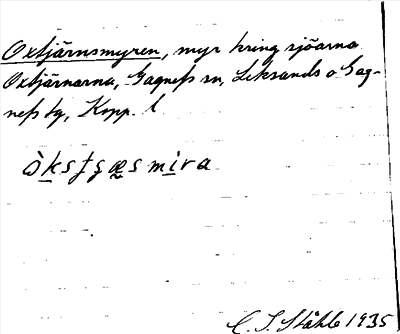 Oxtjärnsmyren, myr kring sjöarna
Oxtjärnarna, Gagnefs sn, Leksands o Gag-
nefs tg, Kopp. l
C. I. Ståhle 1935